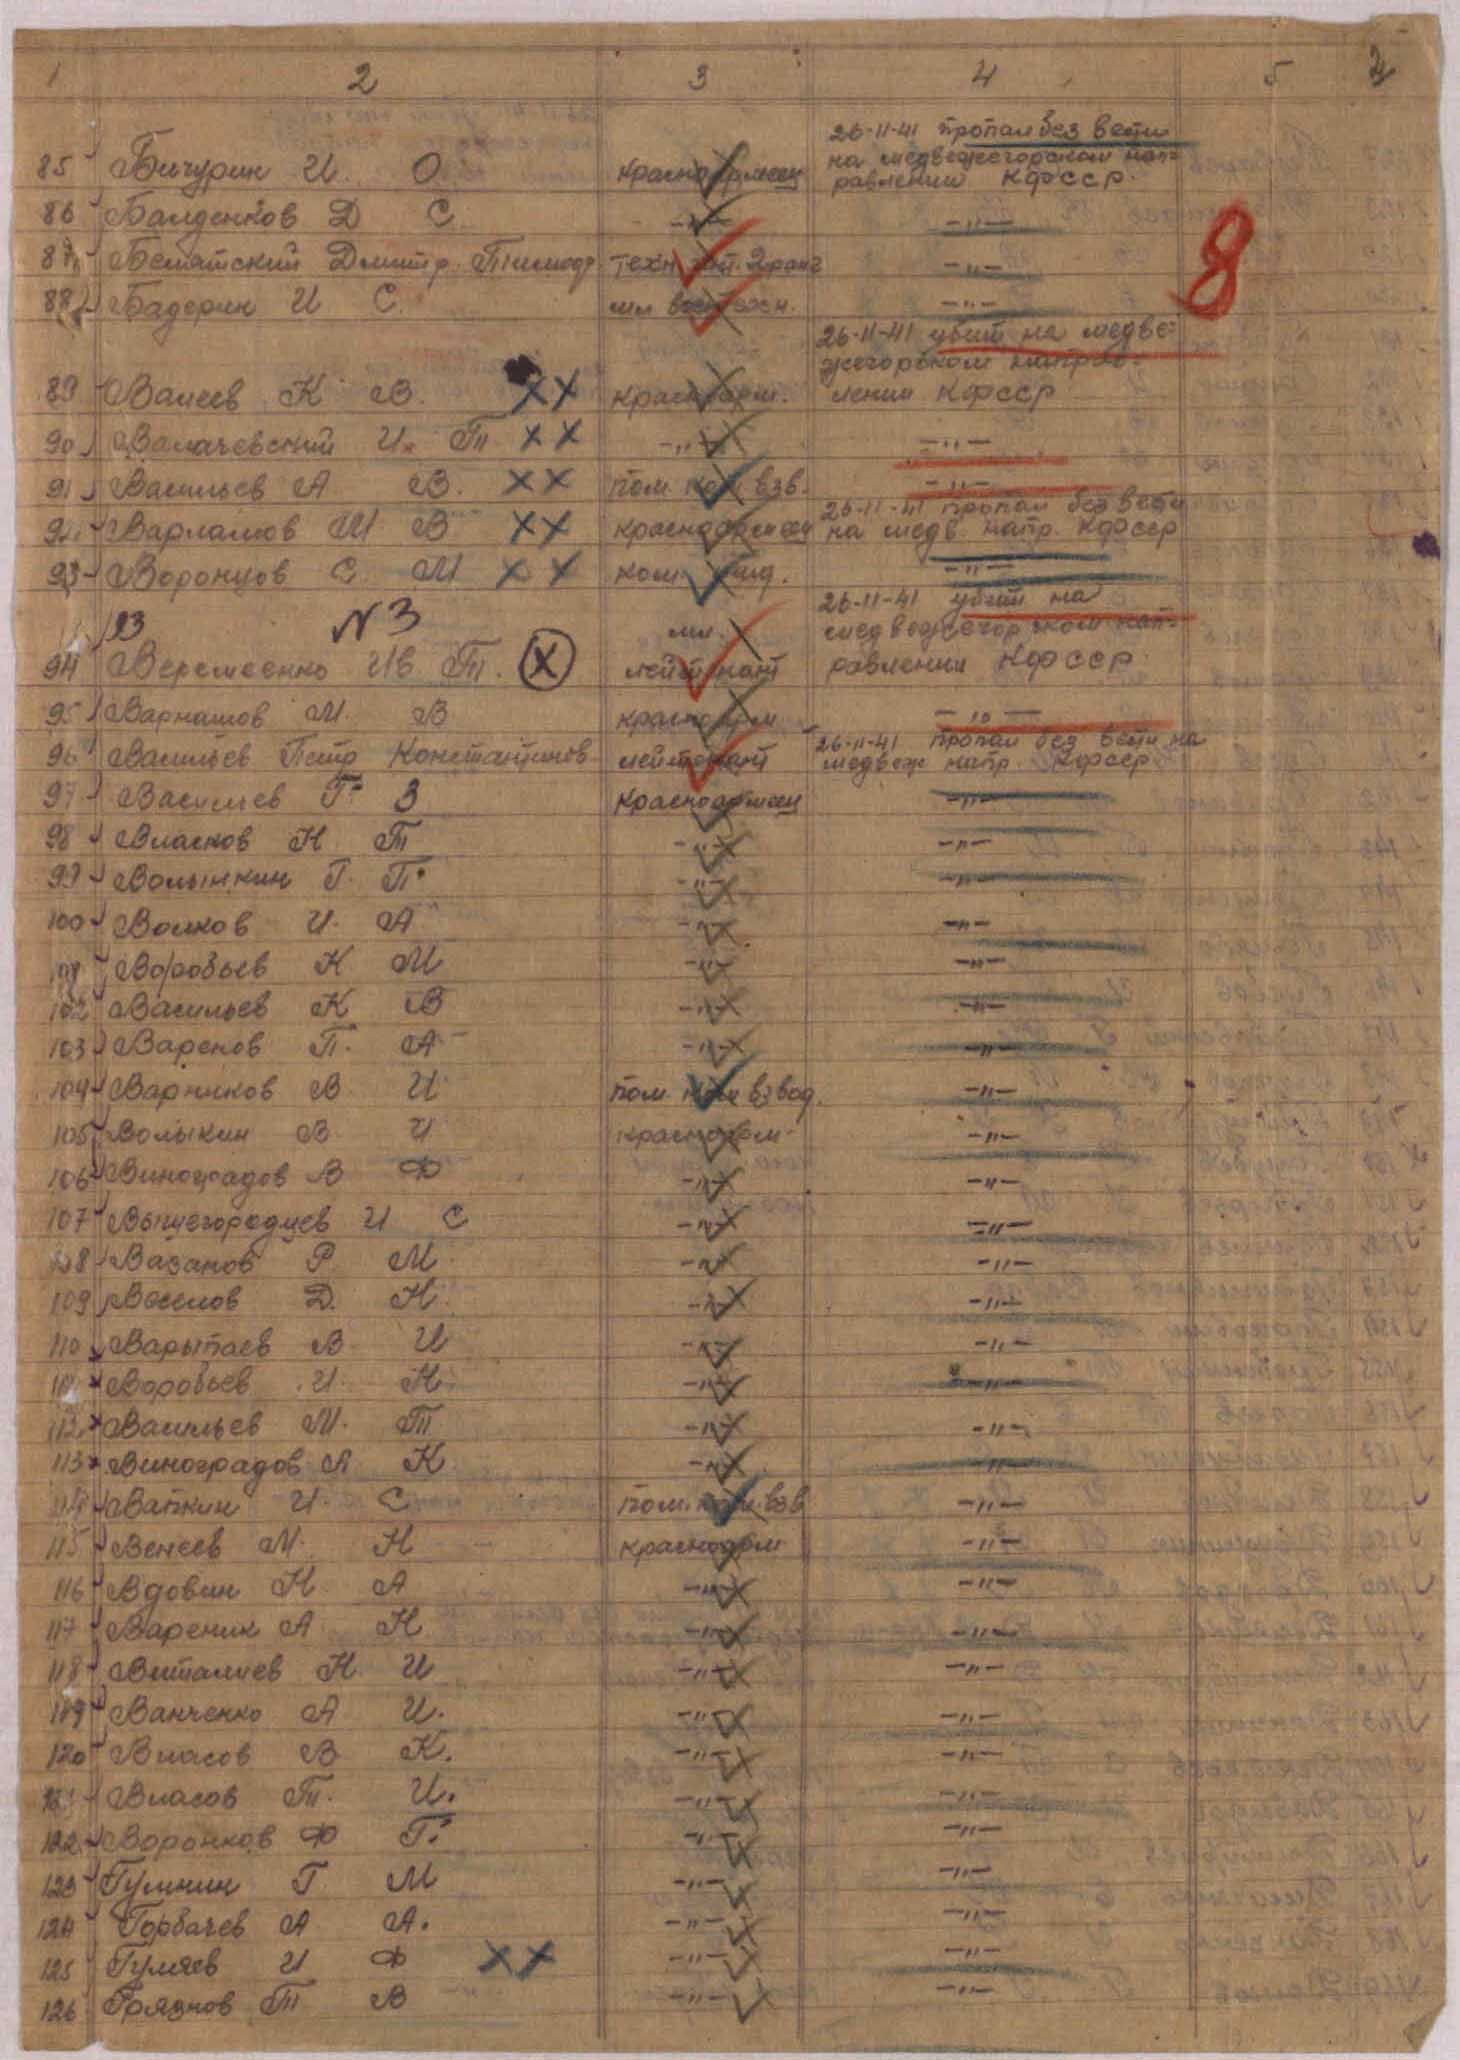 1 2 3 4 5
26-11-41 пропал без вести
85 Бичурин И. О. красноармеец на медвежегорском нап=
равлении КФССР.
86 Балденков Д С -"- -"-
87 Дмитр. Тимоф техн. инт. 2 ранг -"-
88 Бадерин И С. мл -"-
8
26-11-41 убит на медве=
жегорском направ=
89 Валеев К В. ХХ красноарм. лении КФССР
90 Валачевский И. Т ХХ -"- -"-
91 Васильев А В. ХХ пом. ком взв. -"-
26-11-41 пропал без вести
92 Варламов М В ХХ красноармеец на медв. напр. КФССР
93 Воронцов С М ХХ ком. отд. -"-
23 N 3
26-11-41 убит на
мл. медвежегорском нап=
94 Веремеенко Ив Т. Х лейтенант равлении КФССР
95 Варнашов М. В красноарм -"-
26-11-41 пропал без вести на
96 Васильев Петр Константинов лейтенант медвеж напр. КФССР
97 Васильев Г. З красноармеец -"-
98 Власков Н Т -"- -"-
99 Волынкин Г. П. -"- -"-
100 Волков И. А -"- -"-
101 Воробьев К М -"- -"-
102 Васильев К В -"- -"-
103 Варенов П. А -"- -"-
104 Варников В И пом. ком взвод. -"-
105 Волыкин В И красноарм- -"-
106 Виноградов В Ф -"- -"-
107 Вышегородцев И С -"- -"-
108 Вазанов Р М -"- -"-
109 Веселов Д. Н. -"- -"-
110 Варыпаев В И -"- -"-
111 Воробьев И. Н -"- -"-
112 Васильев М. Т -"- -"-
113 Виноградов А К -"- -"-
114 Вапкин И. С пом. ком. взв -"-
115 Венеев М. Н красноарм -"-
116 Вдовин Н А -"- -"-
117 Вареник А Н -"- -"-
118 Виталиев Н. И -"- -"-
119 Ванченко А И. -"- -"-
120 Власов В К. -"- -"-
121 Власов Т. И. -"- -"-
122 Воронков Ф Г. -"- -"-
123 Гумнин Г М -"- -"-
124 Горбачев А А. -"- -"-
125 Гуляев И Ф ХХ -"- -"-
126 Грязнов Т В -"- -"-